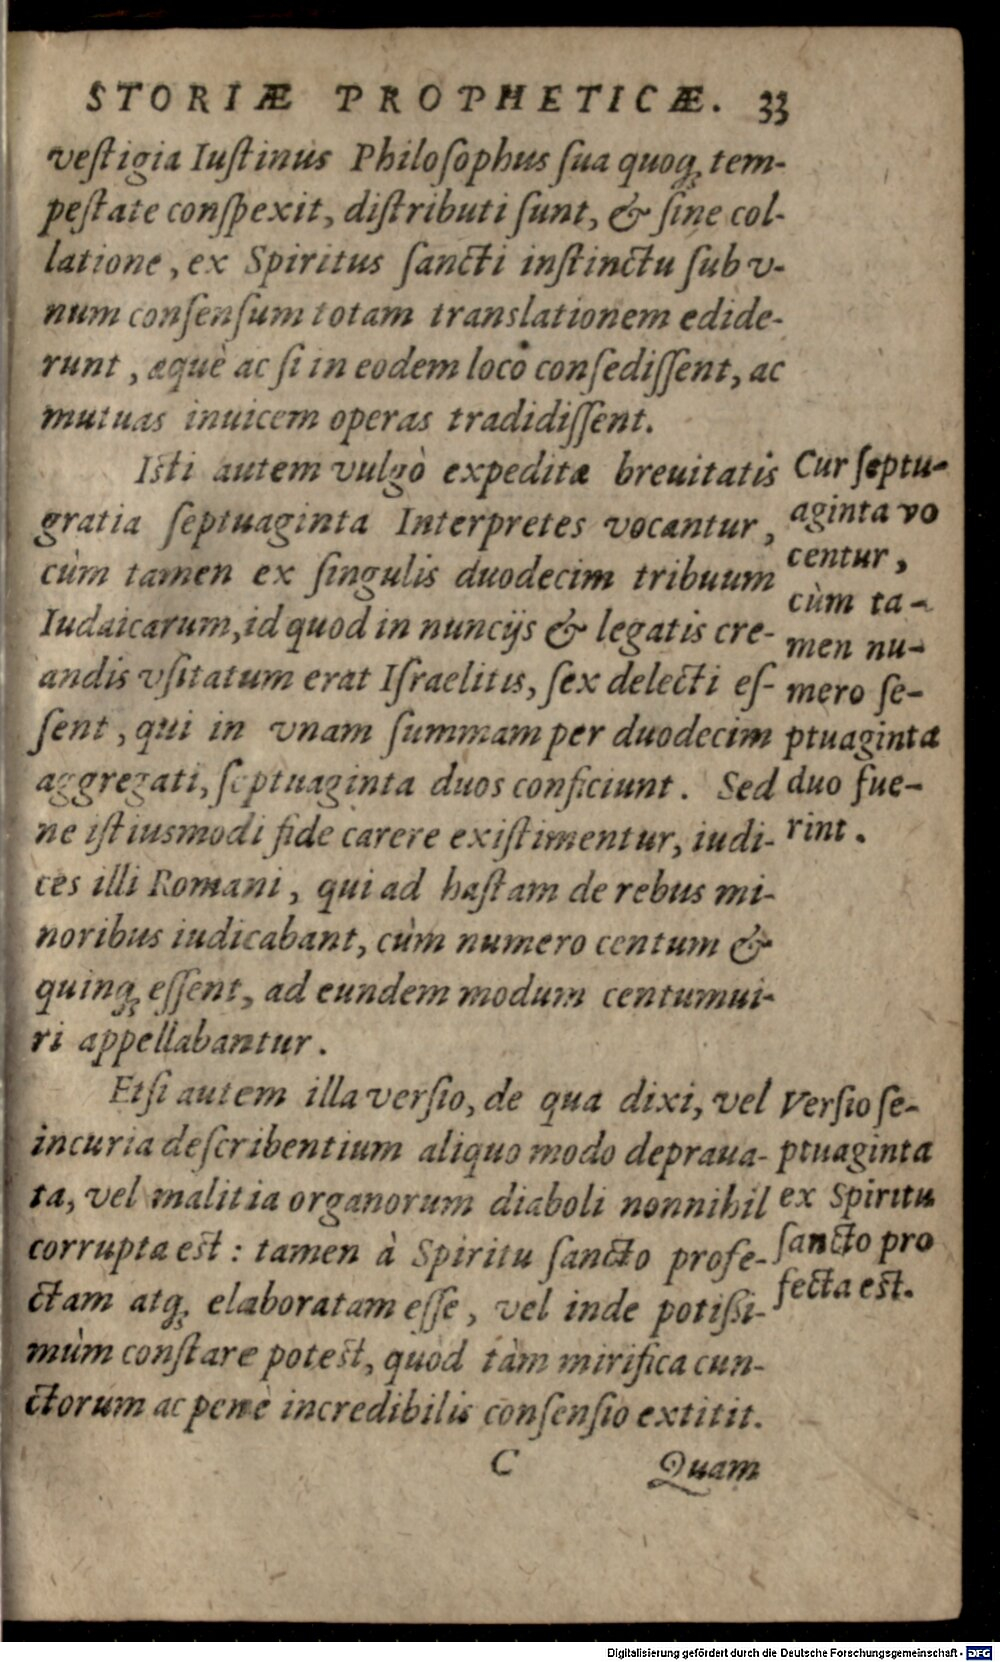 STORIÆ PROPHETICÆ. 33
veſtigia Iuſtinus Philoſophus ſua quoq; tem-
peſtate conſpexit, diſtributi ſunt, & ſine col-
latione, ex Spiritus ſancti inſtinctu ſub v-
num conſenſum totam translationem edide-
runt, æquè ac ſi in eodem loco conſediſſent, ac
mutuas inuicem operas tradidiſſent.
Iſti autem vulgò expeditæ breuitatis
gratia ſeptuaginta Interpretes vocantur,
cùm tamen ex ſingulis duodecim tribuum
Iudaicarum, id quod in nuncijs & legatis cre-
andis vſitatum erat Iſraelitis, ſex delecti eſ-
ſent, qui in vnam ſummam per duodecim
aggregati, ſeptuaginta duos conficiunt. Sed
ne iſtiusmodi fide carere exiſtimentur, iudi-
ces illi Romani, qui ad haſtam de rebus mi-
noribus iudicabant, cùm numero centum &
quinq; eſſent, ad eundem modum centumui-
ri appellabantur.
Cur ſeptu-
aginta vo
centur,
cùm ta-
men nu-
mero ſe-
ptuaginta
duo fue-
rint.
Etſi autem illa verſio, de qua dixi, vel
incuria deſcribentium aliquo modo depraua-
ta, vel malitia organorum diaboli nonnihil
corrupta eſt: tamen à Spiritu ſancto profe-
ctam atq; elaboratam eſſe, vel inde potiſsi-
mùm conſtare poteſt, quòd tàm mirifica cun-
ctorum ac penè incredibilis conſenſio extitit.
Verſio ſe-
ptuaginta
ex Spiritu
ſancto pro
fecta eſt.
C Quam
Digitalisierung gefördert durch die Deutsche Forschungsgemeinschaft - DFG